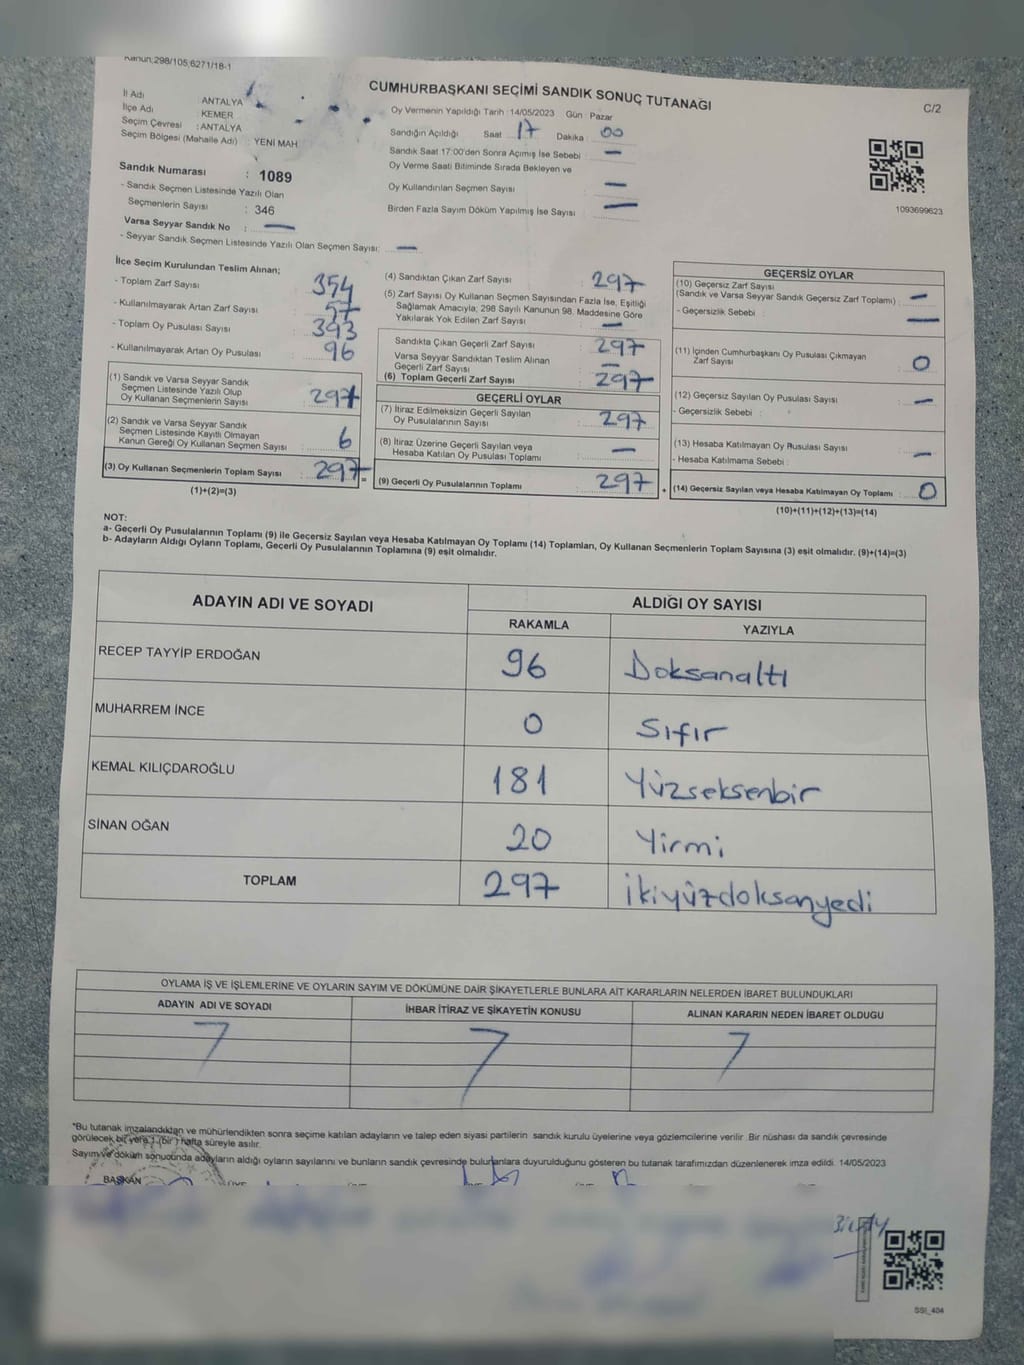 Kanun:298/105,6271/18-1
CUMHURBAŞKANI SEÇİMİ SANDIK SONUÇ TUTANAĞI
C/2
İl Adı : ANTALYA
İlçe Adı : KEMER
Seçim Çevresi : ANTALYA
Seçim Bölgesi (Mahalle Adı) : YENİ MAH
Sandık Numarası : 1089
- Sandık Seçmen Listesinde Yazılı Olan
Seçmenlerin Sayısı : 346
Varsa Seyyar Sandık No : —
- Seyyar Sandık Seçmen Listesinde Yazılı Olan Seçmen Sayısı: —
Oy Vermenin Yapıldığı Tarih : 14/05/2023 Gün : Pazar
Sandığın Açıldığı Saat : 17 Dakika : 00
Sandık Saat 17:00'den Sonra Açımış İse Sebebi : —
Oy Verme Saati Bitiminde Sırada Bekleyen ve
Oy Kullandırılan Seçmen Sayısı : —
Birden Fazla Sayım Döküm Yapılmış İse Sayısı : —
1093699623
İlçe Seçim Kurulundan Teslim Alınan;
- Toplam Zarf Sayısı : 354
- Kullanılmayarak Artan Zarf Sayısı : 57
- Toplam Oy Pusulası Sayısı : 393
- Kullanılmayarak Artan Oy Pusulası : 96
(1) Sandık ve Varsa Seyyar Sandık
Seçmen Listesinde Yazılı Olup
Oy Kullanan Seçmenlerin Sayısı : 297
(2) Sandık ve Varsa Seyyar Sandık
Seçmen Listesinde Kayıtlı Olmayan
Kanun Gereği Oy Kullanan Seçmen Sayısı : 6
(3) Oy Kullanan Seçmenlerin Toplam Sayısı : 297
(1)+(2)=(3)
(4) Sandıktan Çıkan Zarf Sayısı : 297
(5) Zarf Sayısı Oy Kullanan Seçmen Sayısından Fazla İse, Eşitliği
Sağlamak Amacıyla, 298 Sayılı Kanunun 98. Maddesine Göre
Yakılarak Yok Edilen Zarf Sayısı : —
Sandıkta Çıkan Geçerli Zarf Sayısı : 297
Varsa Seyyar Sandıktan Teslim Alınan
Geçerli Zarf Sayısı : —
(6) Toplam Geçerli Zarf Sayısı : 297
GEÇERLİ OYLAR
(7) İtiraz Edilmeksizin Geçerli Sayılan
Oy Pusulalarının Sayısı : 297
(8) İtiraz Üzerine Geçerli Sayılan veya
Hesaba Katılan Oy Pusulası Toplamı : —
(9) Geçerli Oy Pusulalarının Toplamı : 297
GEÇERSİZ OYLAR
(10) Geçersiz Zarf Sayısı
(Sandık ve Varsa Seyyar Sandık Geçersiz Zarf Toplamı) : —
- Geçersizlik Sebebi : —
(11) İçinden Cumhurbaşkanı Oy Pusulası Çıkmayan
Zarf Sayısı : 0
(12) Geçersiz Sayılan Oy Pusulası Sayısı : —
- Geçersizlik Sebebi :
(13) Hesaba Katılmayan Oy Pusulası Sayısı
- Hesaba Katılmama Sebebi : —
(14) Geçersiz Sayılan veya Hesaba Katılmayan Oy Toplamı : 0
(10)+(11)+(12)+(13)=(14)
NOT:
a- Geçerli Oy Pusulalarının Toplamı (9) ile Geçersiz Sayılan veya Hesaba Katılmayan Oy Toplamı (14) Toplamları, Oy Kullanan Seçmenlerin Toplam Sayısına (3) eşit olmalıdır. (9)+(14)=(3)
b- Adayların Aldığı Oyların Toplamı, Geçerli Oy Pusulalarının Toplamına (9) eşit olmalıdır.
ADAYIN ADI VE SOYADI ALDIĞI OY SAYISI
RAKAMLA YAZIYLA
RECEP TAYYİP ERDOĞAN 96 Doksanaltı
MUHARREM İNCE 0 Sıfır
KEMAL KILIÇDAROĞLU 181 Yüzseksenbir
SİNAN OĞAN 20 Yirmi
TOPLAM 297 İkiyüzdoksanyedi
OYLAMA İŞ VE İŞLEMLERİNE VE OYLARIN SAYIM VE DÖKÜMÜNE DAİR ŞİKAYETLERLE BUNLARA AİT KARARLARIN NELERDEN İBARET BULUNDUKLARI
ADAYIN ADI VE SOYADI İHBAR İTİRAZ VE ŞİKAYETİN KONUSU ALINAN KARARIN NEDEN İBARET OLDUGU
*Bu tutanak imzalandıktan ve mühürlendikten sonra seçime katılan adayların ve talep eden siyasi partilerin sandık kurulu üyelerine veya gözlemcilerine verilir. Bir nüshası da sandık çevresinde
görülecek bir yere 1 (bir) hafta süreyle asılır.
Sayım ve döküm sonucunda adayların aldığı oyların sayılarını ve bunların sandık çevresinde bulunanlara duyurulduğunu gösteren bu tutanak tarafımızdan düzenlenerek imza edildi. 14/05/2023
BAŞKAN
SSI_404